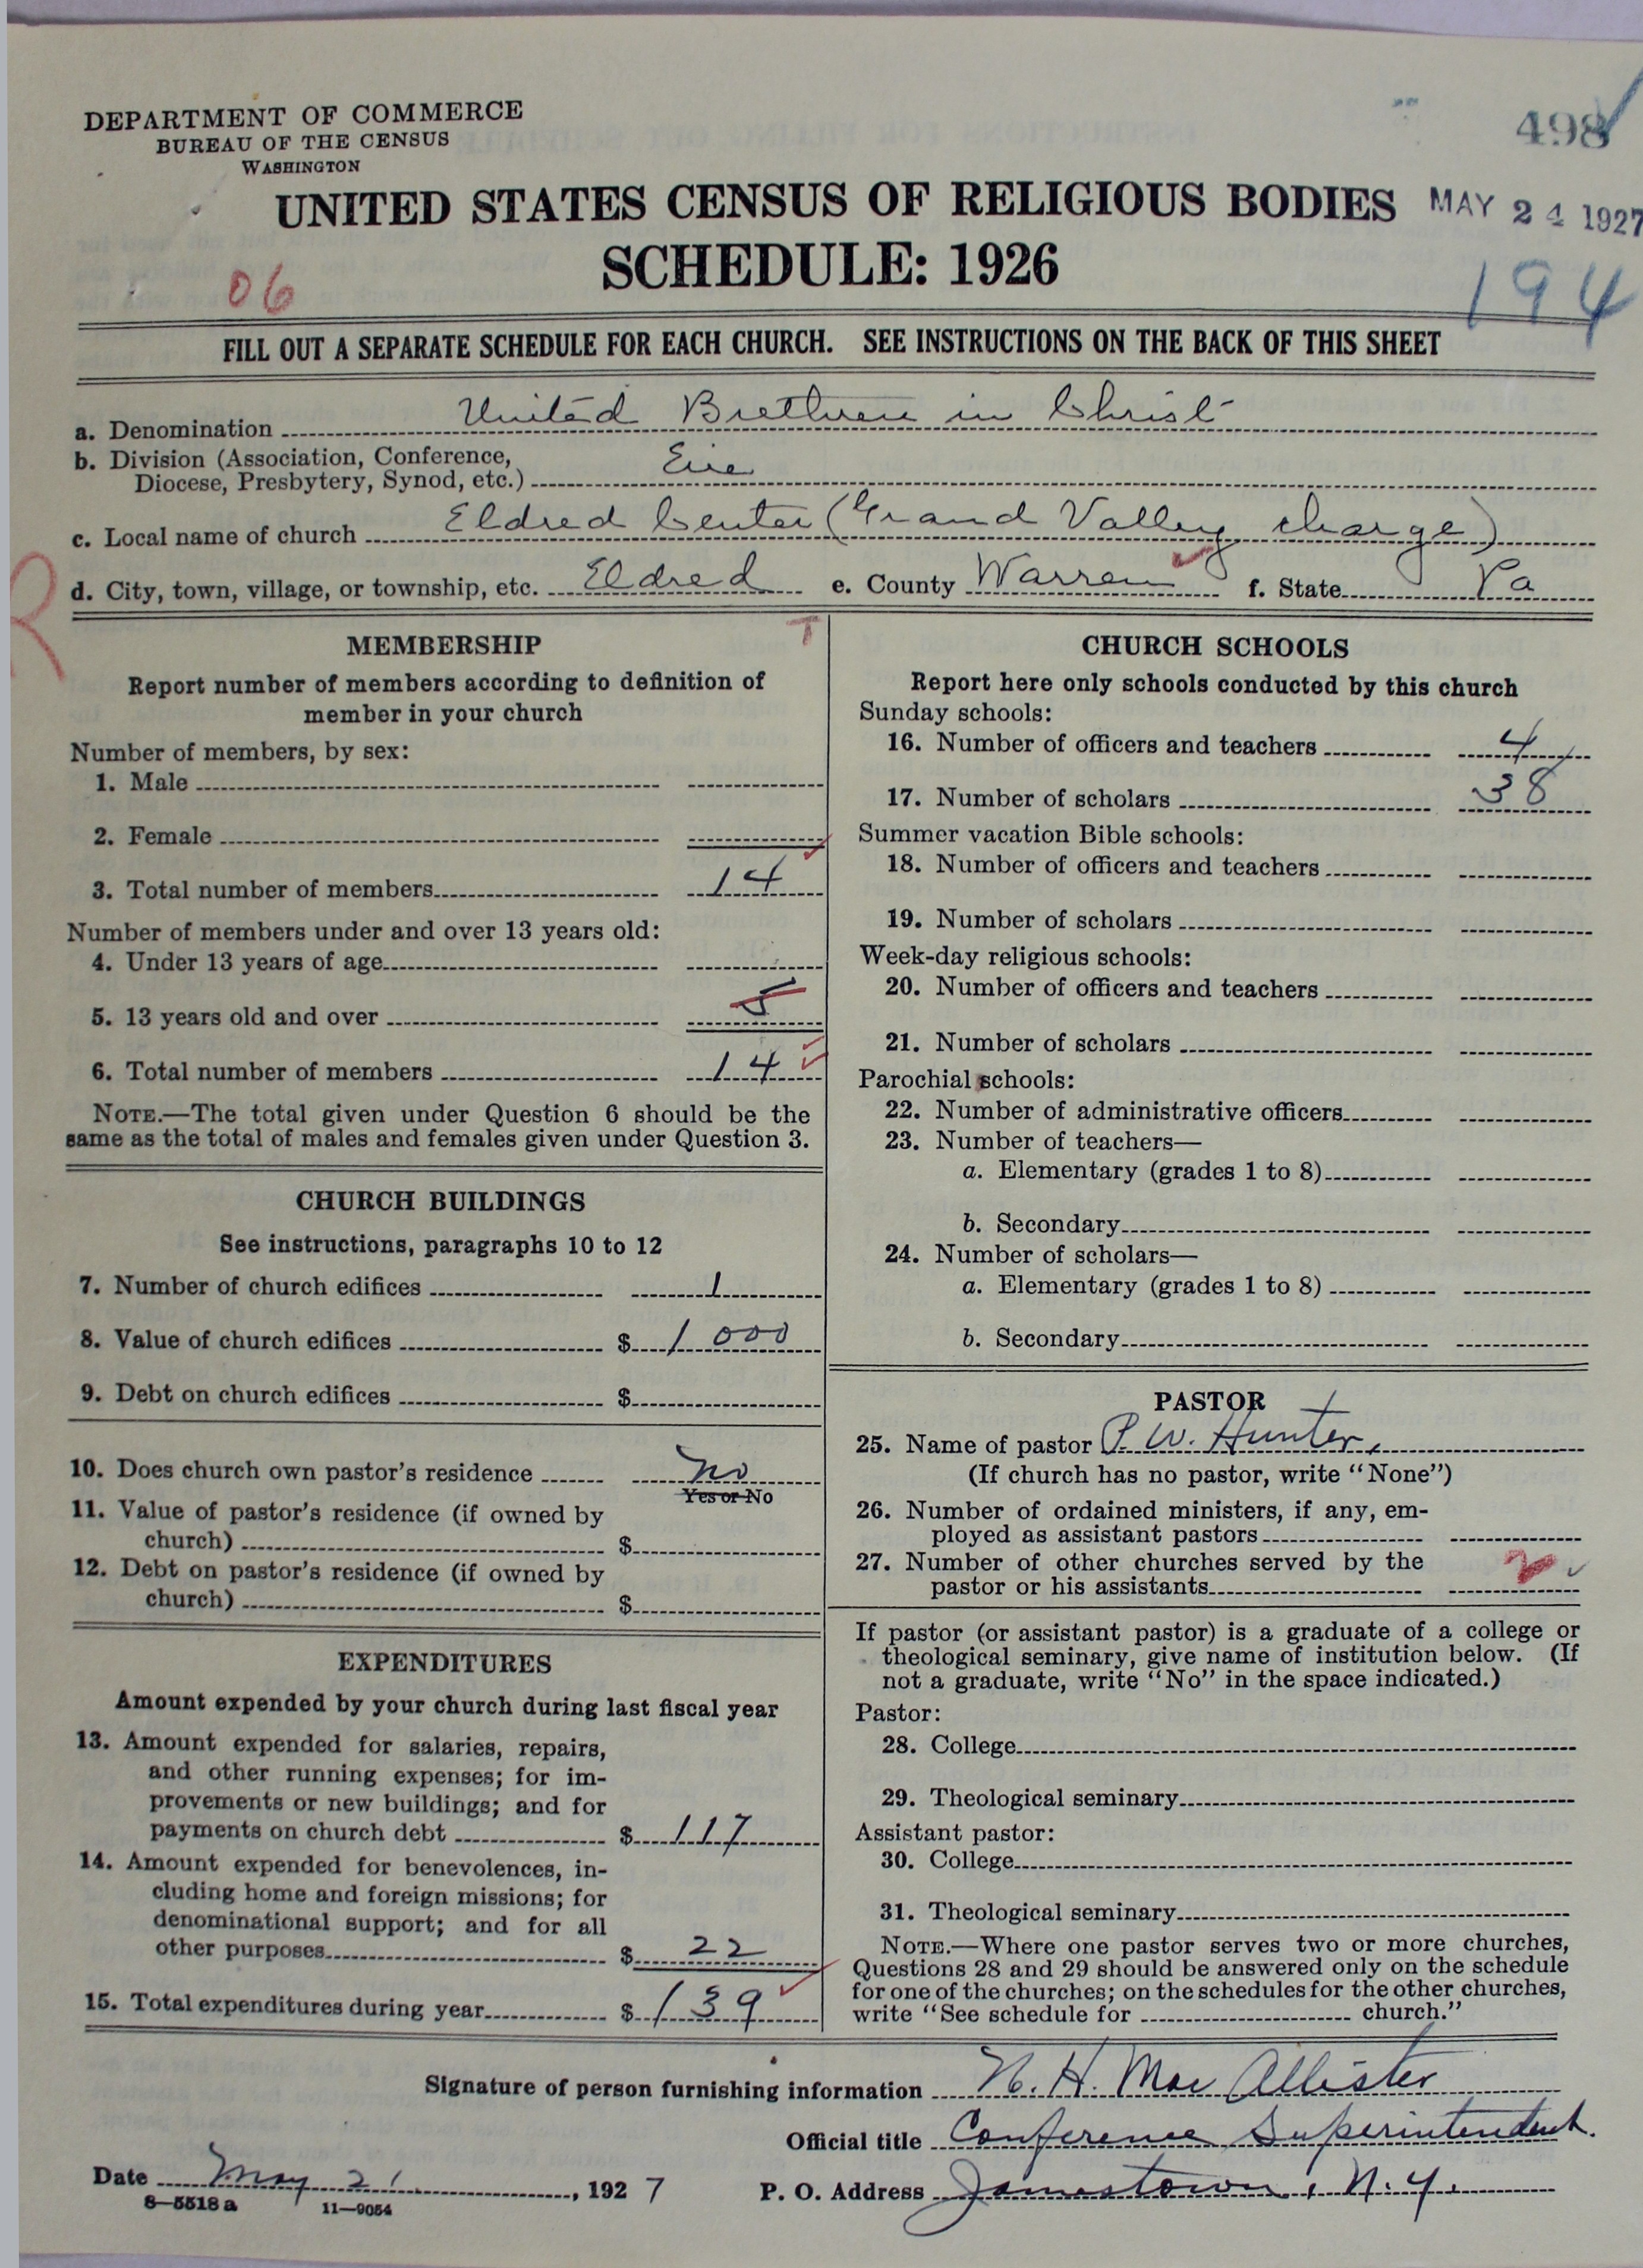 DEPARTMENT OF COMMERCE
BUREAU OF THE CENSUS
WASHINGTON
498
UNITED STATES CENSUS OF RELIGIOUS BODIES
MAY 24 1927
SCHEDULE: 1926
06
194
FILL OUT A SEPARATE SCHEDULE FOR EACH CHURCH. SEE INSTRUCTIONS ON THE BACK OF THIS SHEET
a. Denomination United Brethren in Christ
b. Division (Association, Conference,
Diocese, Presbytery, Synod, etc.) Erie
c. Local name of church Eldred Center (Grand Valley charge)
d. City, town, village, or township, etc. Eldred e. County Warren f. State Pa
R
T
MEMBERSHIP
Report number of members according to definition of
member in your church
Number of members, by sex:
1. Male
2. Female
3. Total number of members 14
Number of members under and over 13 years old:
4. Under 13 years of age
5. 13 years old and over 5
6. Total number of members 14
NOTE.—The total given under Question 6 should be the
same as the total of males and females given under Question 3.
CHURCH BUILDINGS
See instructions, paragraphs 10 to 12
7. Number of church edifices 1
8. Value of church edifices $ 1 000
9. Debt on church edifices $
10. Does church own pastor's residence no
Yes or No
11. Value of pastor's residence (if owned by
church) $
12. Debt on pastor's residence (if owned by
church) $
EXPENDITURES
Amount expended by your church during last fiscal year
13. Amount expended for salaries, repairs,
and other running expenses; for im-
provements or new buildings; and for
payments on church debt $ 117
14. Amount expended for benevolences, in-
cluding home and foreign missions; for
denominational support; and for all
other purposes $ 22
15. Total expenditures during year $ 139
CHURCH SCHOOLS
Report here only schools conducted by this church
Sunday schools:
16. Number of officers and teachers 4
17. Number of scholars 38
Summer vacation Bible schools:
18. Number of officers and teachers
19. Number of scholars
Week-day religious schools:
20. Number of officers and teachers
21. Number of scholars
Parochial schools:
22. Number of administrative officers
23. Number of teachers—
a. Elementary (grades 1 to 8)
b. Secondary
24. Number of scholars—
a. Elementary (grades 1 to 8)
b. Secondary
PASTOR
25. Name of pastor P. W. Hunter,
(If church has no pastor, write "None")
26. Number of ordained ministers, if any, em-
ployed as assistant pastors
27. Number of other churches served by the
pastor or his assistants 2
If pastor (or assistant pastor) is a graduate of a college or
theological seminary, give name of institution below. (If
not a graduate, write "No" in the space indicated.)
Pastor:
28. College
29. Theological seminary
Assistant pastor:
30. College
31. Theological seminary
NOTE.—Where one pastor serves two or more churches,
Questions 28 and 29 should be answered only on the schedule
for one of the churches; on the schedules for the other churches,
write "See schedule for church."
Signature of person furnishing information N. H. Mac Allister
Official title Conference Superintendent.
Date May 21, 1927 P. O. Address Jamestown, N. Y.
8—5518 a 11—9054